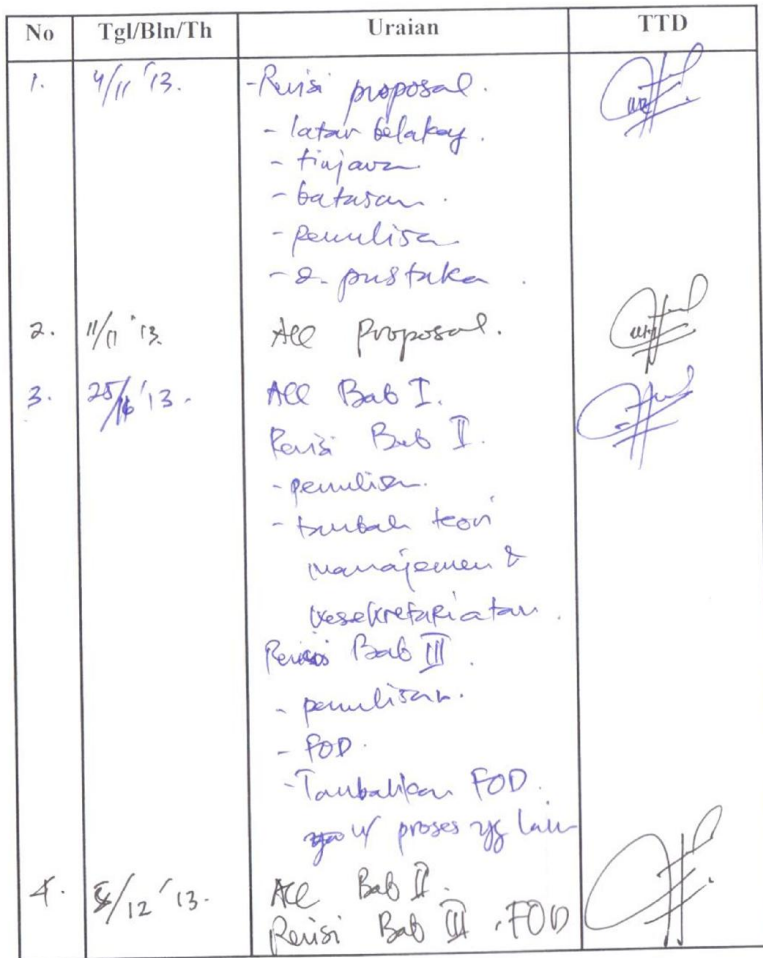 No Tgl/Bln/Th Uraian TTD
1. 4/11 '13. -Revisi proposal.
- latar belakag.
- tinjaua
- batasan.
- penulisa
- d. pustaka.
2. 11/11 '13. Acc Proposal.
3. 25/11 '13. Acc Bab I.
Revisi Bab II.
- penulisan.
- tambah teori
manajemen &
kesekretariatan.
Revisi Bab III.
- penulisan.
- FOD.
- Tambahkan FOD.
u/ proses yg lain
4. /12 '13. Acc Bab II.
Revisi Bab III. FOD